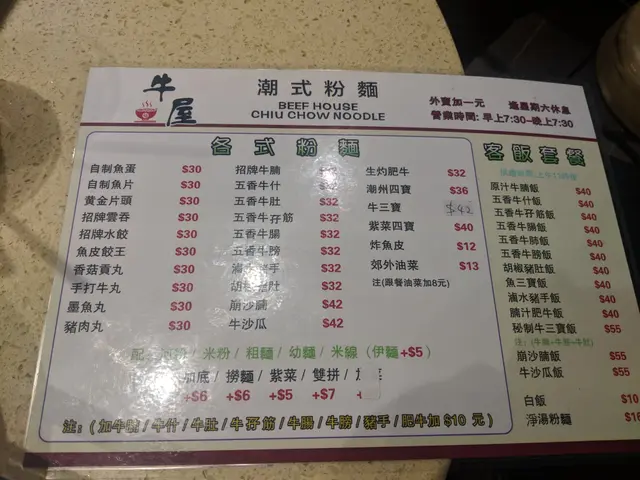 牛屋
潮式粉麵
BEEF HOUSE
CHIU CHOW NOODLE
外賣加一元 逢星期六休息
營業時間: 早上7:30-晚上7:30
各式粉麵
自制魚蛋 $30
自制魚片 $30
黃金片頭 $30
招牌雲吞 $30
招牌水餃 $30
魚皮餃王 $30
香菇貢丸 $30
手打牛丸 $30
墨魚丸 $30
豬肉丸 $30
招牌牛腩
五香牛什
五香牛肚 $32
五香牛孖筋 $32
五香牛腸 $32
五香牛膀 $32
手 $32
胡椒肚 $32
崩沙腩 $42
牛沙瓜 $42
生灼肥牛 $32
潮州四寶 $36
牛三寶 $42
紫菜四寶 $40
炸魚皮 $12
郊外油菜 $13
注:(跟餐油菜加8元)
/ 米粉 / 粗麵 / 幼麵 / 米線 (伊麵+$5 )
加底 / 撈麵 / 紫菜 / 雙拼 /
+$6 +$6 +$5 +$7
注: ( 加牛腩 / 牛什 / 牛肚 / 牛孖筋 / 牛腸 / 牛膀 / 豬手 / 肥牛加 $10 元 )
客飯套餐
原汁牛腩飯 $40
五香牛什飯 $40
五香牛孖筋飯 $40
五香牛腸飯 $40
五香牛肺飯 $40
五香牛膀飯 $40
胡椒豬肚飯 $40
魚三寶飯 $40
滷水豬手飯 $40
腩汁肥牛飯 $40
秘制牛三寶飯 $55
崩沙腩飯 $55
牛沙瓜飯 $55
白飯 $10
淨湯粉麵